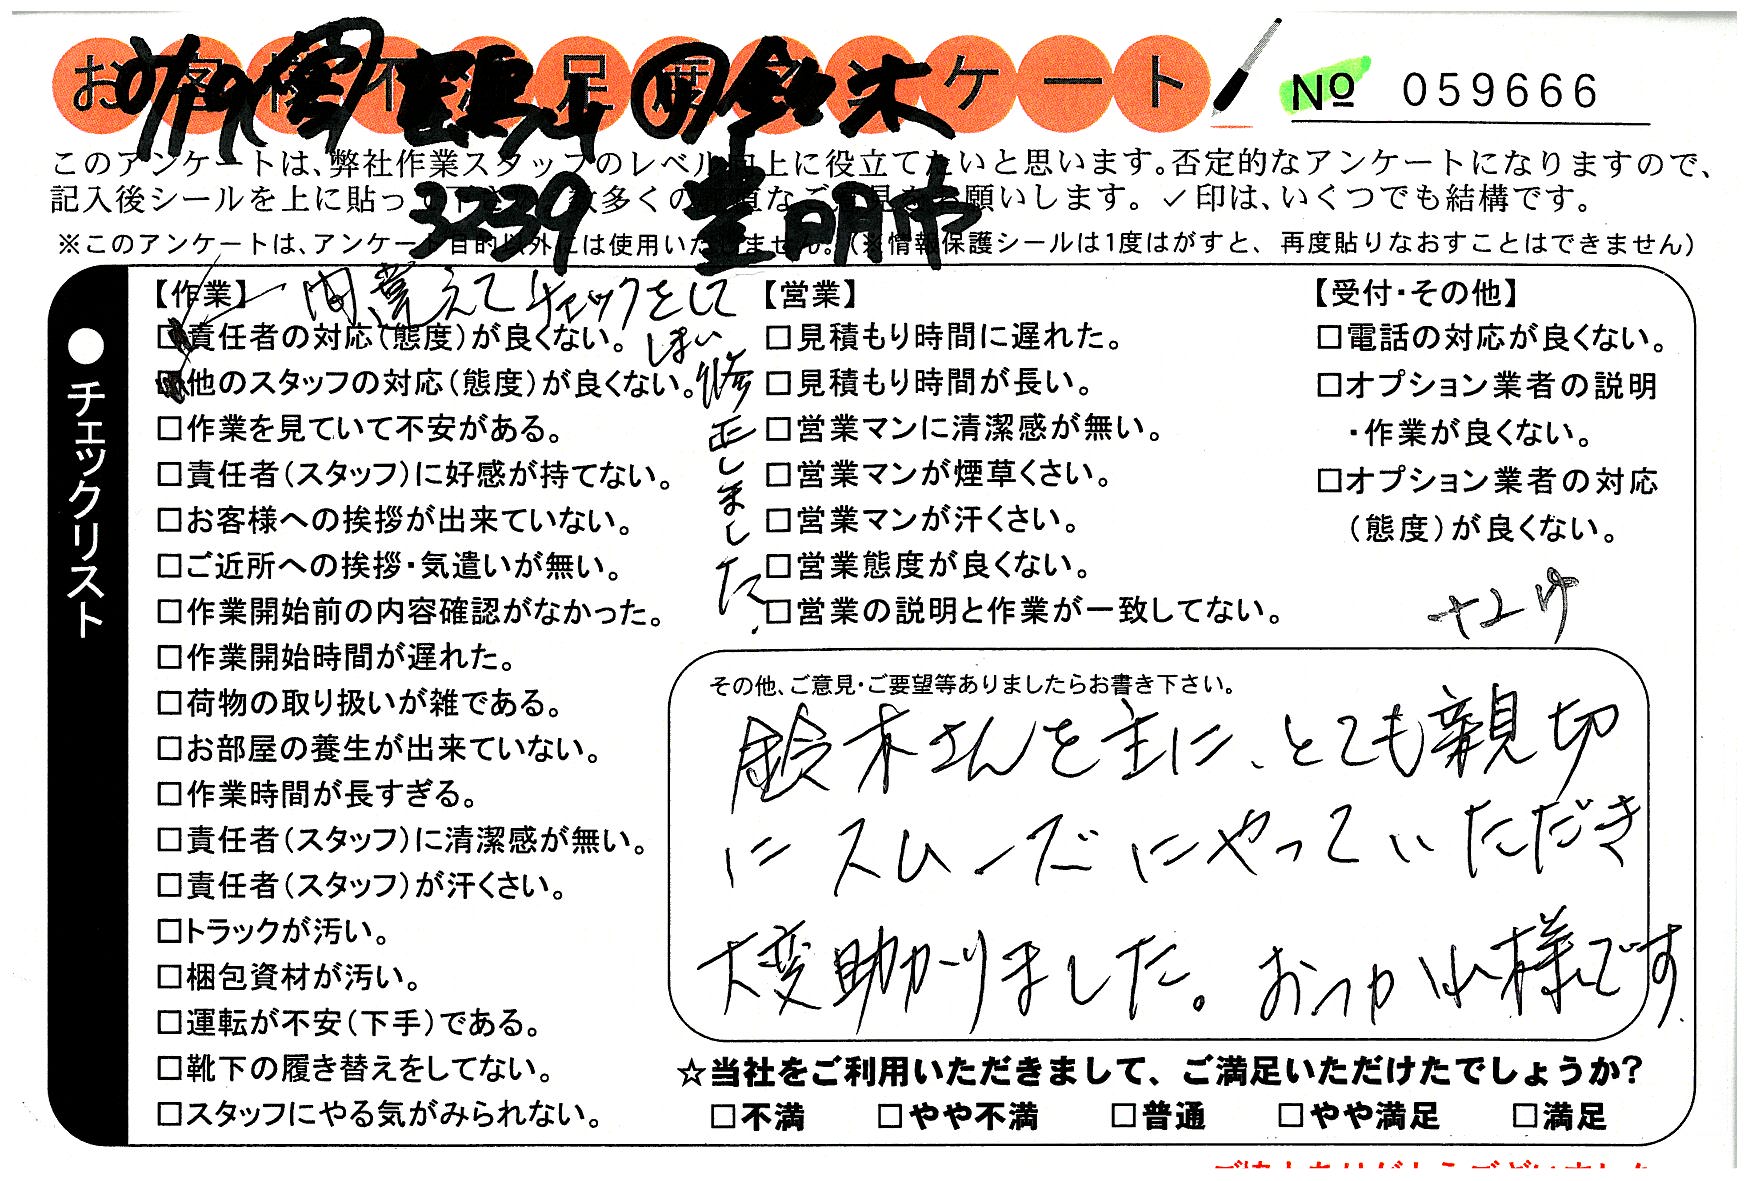 お客様不満足度アンケート
No 059666
鈴木
3239 豊明市
このアンケートは、弊社作業スタッフのレベル向上に役立てたいと思います。否定的なアンケートになりますので、
記入後シールを上に貼って下さい。数多くの正直なご意見をお願いします。✓印は、いくつでも結構です。
※このアンケートは、アンケート目的以外には使用いたしません。(※情報保護シールは1度はがすと、再度貼りなおすことはできません)
●チェックリスト
【作業】
間違えてチェックをして
しまい
修正しました.
□責任者の対応(態度)が良くない。
□他のスタッフの対応(態度)が良くない。
□作業を見ていて不安がある。
□責任者(スタッフ)に好感が持てない。
□お客様への挨拶が出来ていない。
□ご近所への挨拶・気遣いが無い。
□作業開始前の内容確認がなかった。
□作業開始時間が遅れた。
□荷物の取り扱いが雑である。
□お部屋の養生が出来ていない。
□作業時間が長すぎる。
□責任者(スタッフ)に清潔感が無い。
□責任者(スタッフ)が汗くさい。
□トラックが汚い。
□梱包資材が汚い。
□運転が不安(下手)である。
□靴下の履き替えをしてない。
□スタッフにやる気がみられない。
【営業】
□見積もり時間に遅れた。
□見積もり時間が長い。
□営業マンに清潔感が無い。
□営業マンが煙草くさい。
□営業マンが汗くさい。
□営業態度が良くない。
□営業の説明と作業が一致してない。
【受付・その他】
□電話の対応が良くない。
□オプション業者の説明
・作業が良くない。
□オプション業者の対応
(態度)が良くない。
その他、ご意見・ご要望等ありましたらお書き下さい。
鈴木さんを主に、とても親切
にスムーズにやっていただき
大変助かりました。おつかれ様です.
☆当社をご利用いただきまして、ご満足いただけたでしょうか?
□不満 □やや不満 □普通 □やや満足 □満足